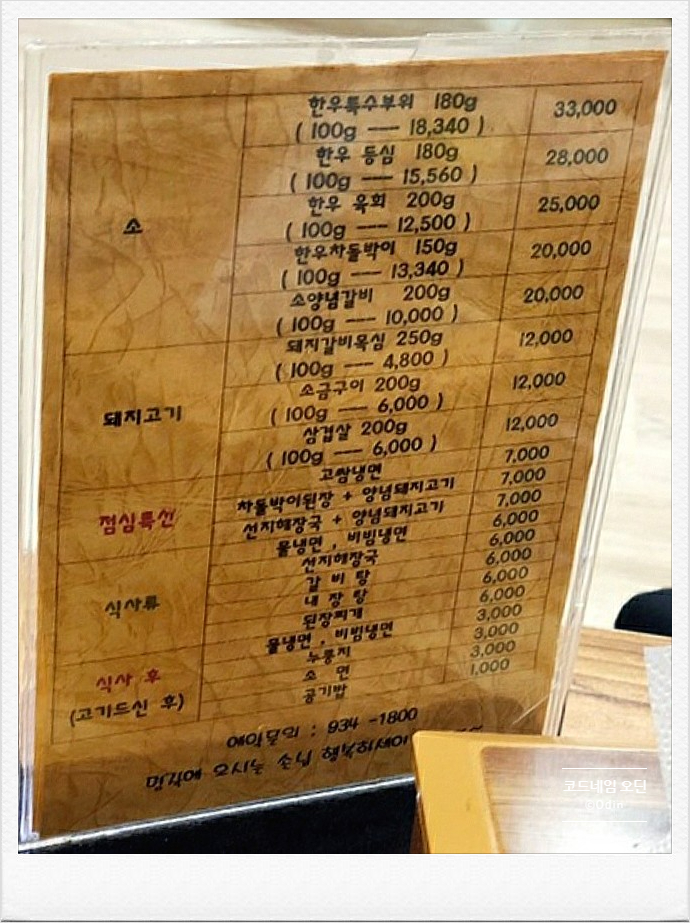 소
한우특수부위 180g 33,000
( 100g --- 18,340 )
한우 등심 180g 28,000
( 100g --- 15,560 )
한우 육회 200g 25,000
( 100g --- 12,500 )
한우차돌박이 150g 20,000
( 100g --- 13,340 )
소양념갈비 200g 20,000
( 100g --- 10,000 )
돼지고기
돼지갈비목심 250g 12,000
( 100g --- 4,800 )
소금구이 200g 12,000
( 100g --- 6,000 )
삼겹살 200g 12,000
( 100g --- 6,000 )
점심특선
고쌈냉면 7,000
차돌박이된장 + 양념돼지고기 7,000
선지해장국 + 양념돼지고기 7,000
식사류
물냉면 , 비빔냉면 6,000
선지해장국 6,000
갈 비 탕 6,000
내 장 탕 6,000
된장찌개 6,000
식사 후
(고기드신 후)
물냉면 , 비빔냉면 3,000
누룽지 3,000
소 면 3,000
공기밥 1,000
예약문의 : 934 -1800
오시는 손님
코드네임 오딘
©Odin